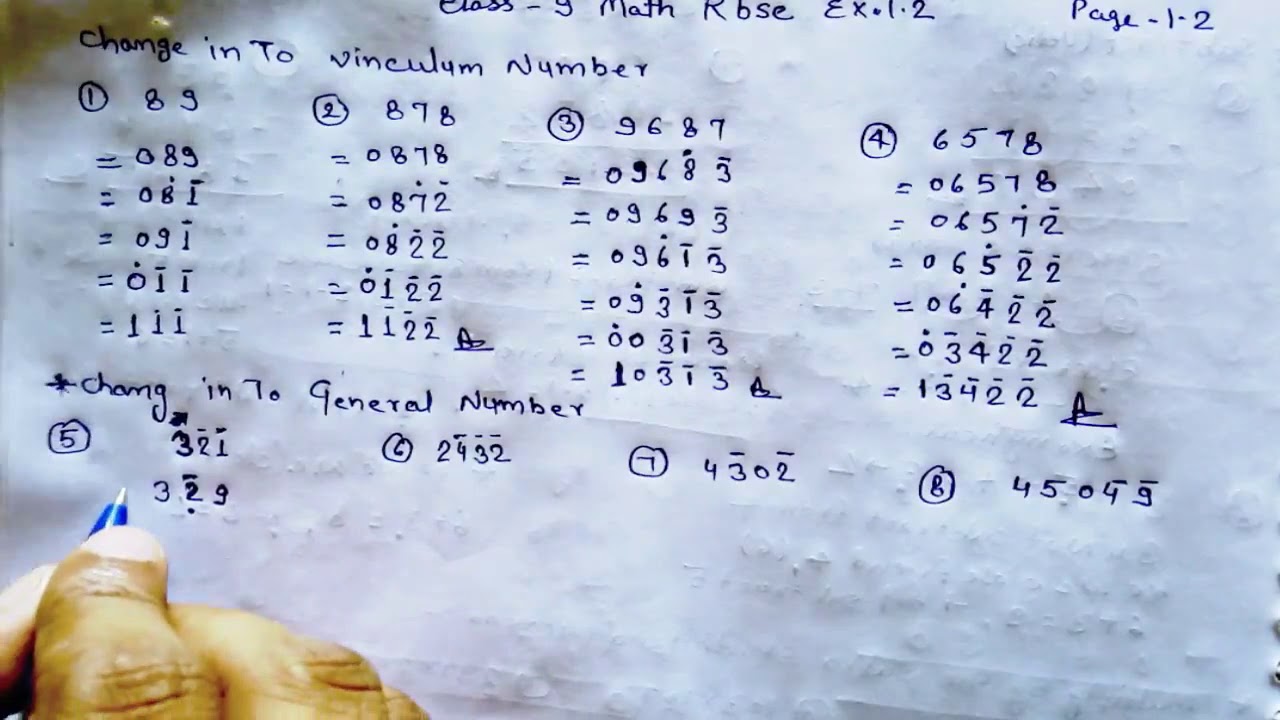 Class - 9 Math Rbse Ex.1.2 Page -1.2
Change in To vinculum Number
① 89
= 089
= 08̇1̄
= 091̄
= 0̇1̄1̄
= 11̄1̄
② 878
= 0878
= 087̇2̄
= 08̇2̄2̄
= 0̇1̄2̄2̄
= 11̄2̄2̄ A
③ 9687
= 0968̇3̄
= 09693̄
= 096̇1̄3̄
= 09̇3̄1̄3̄
= 0̇03̄1̄3̄
= 103̄1̄3̄ A
④ 6578
= 06578
= 0657̇2̄
= 065̇2̄2̄
= 06̇4̄2̄2̄
= 0̇3̄4̄2̄2̄
= 13̄4̄2̄2̄ A
*Chang in To General Number
⑤ 32̄1̄
32̣̄9
⑥ 24̄3̄2̄
⑦ 43̄02̄
⑧ 45̄04̄9̄